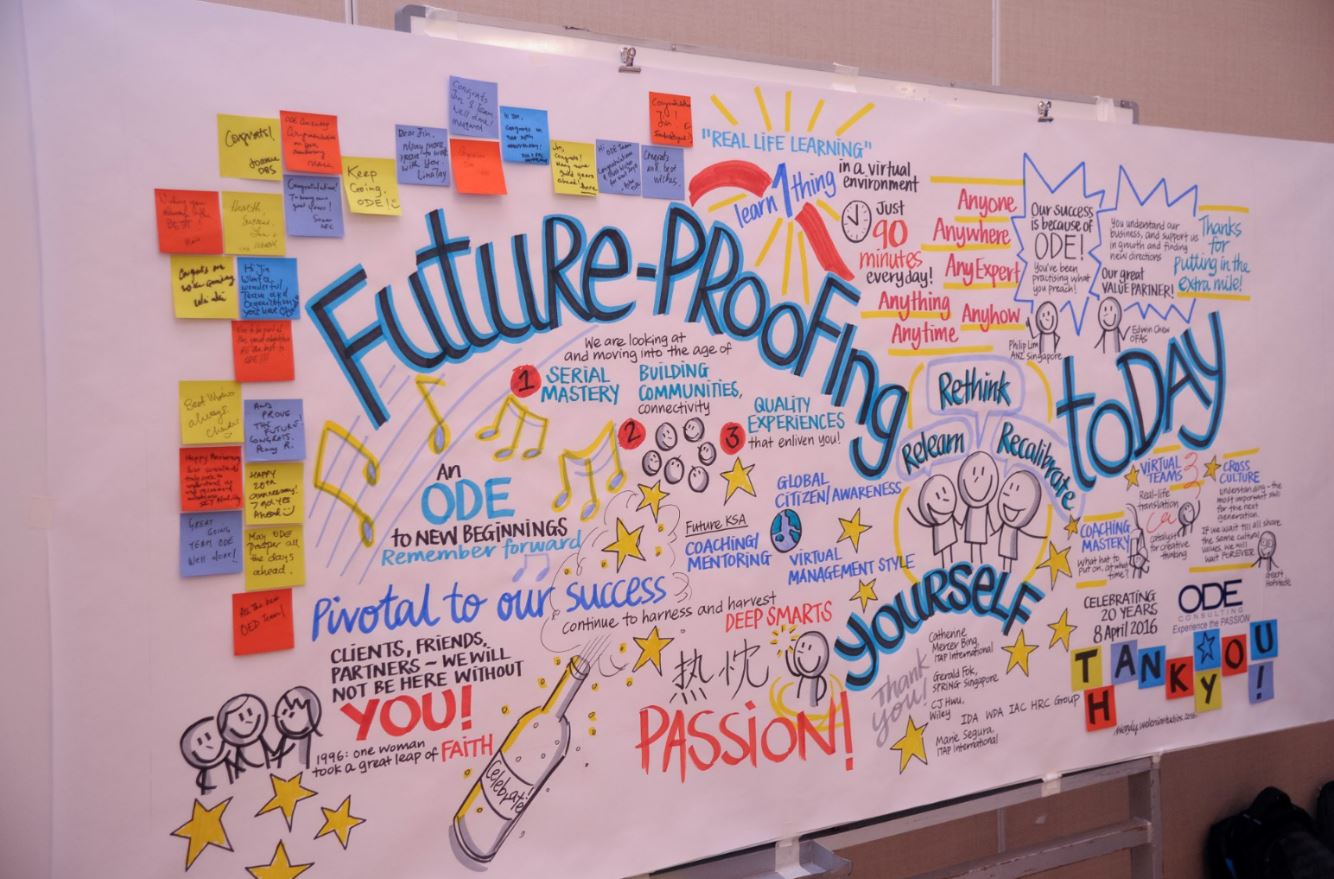 Congrats!
Joanne
DBS
Keep
Going,
ODE!
Dear Jin,
Many more
years to work
with you.
Congrats
Jin & team
well done!
Congrats!
Many more
gold years
ahead!
Hi ODE Team
Congrats
and best
wishes.
Health,
Success,
Hi Jin
What a
wonderful
Team and
Organisation
you have
Best Wishes
always
AND PROVE
THE FUTURE!
CONGRATS.
Penny R.
Happy Anniversary
HAPPY
20th
ANNIVERSARY!
GREAT
GOING
TEAM ODE
Well done!
May ODE
Prosper all
the days
ahead.
All the best
OED Team!
"REAL LIFE LEARNING"
learn 1 thing
in a virtual
environment
Just
90
minutes
everyday!
Anyone
Anywhere
Any Expert
Anything
Anyhow
Anytime
Our success
is because of
ODE!
You've been
practising what
you preach!
Philip Lim
ANZ Singapore
You understand our
business, and support us
in growth and finding
new directions
Our great
VALUE PARTNER!
Edwin Chow
Thanks
for
putting in the
extra mile!
FUTURE-PROOFing
toDAY
We are looking at
and moving into the age of
1 SERIAL
MASTERY
BUILDING
COMMUNITIES,
connectivity
2
3
QUALITY
EXPERIENCES
that enliven you!
Rethink
Relearn
Recalibrate
AN
ODE
to NEW BEGINNINGS
Remember forward
GLOBAL
CITIZEN/AWARENESS
Future KSA
COACHING/
MENTORING
VIRTUAL
MANAGEMENT STYLE
VIRTUAL
TEAMS
3
Real-life
translation
Ca
catalyst
for creative
thinking
COACHING
MASTERY
What hat to
put on, at what
time?
CROSS
CULTURE
understanding - the
most important skill
for the next
generation.
If we wait till all share
the same cultural
values, we will
wait FOREVER
Geert
Hofstede
Pivotal to our success
continue to harness and harvest
DEEP SMARTS
yourself
CLIENTS, FRIENDS,
PARTNERS ~ WE WILL
NOT BE HERE WITHOUT
YOU!
1996: one woman
took a great leap of FAITH
Celebrate!
热忱
PASSION!
Thank
you!
Catherine
Mercer Bing,
ITAP International
Gerald Fok,
SPRING Singapore
CJ Hwu,
Wiley
IDA WDA IAC HRC Group
Marie Segura,
ITAP International
CELEBRATING
20 YEARS
8 April 2016
ODE
CONSULTING
Experience the PASSION
THANK YOU!